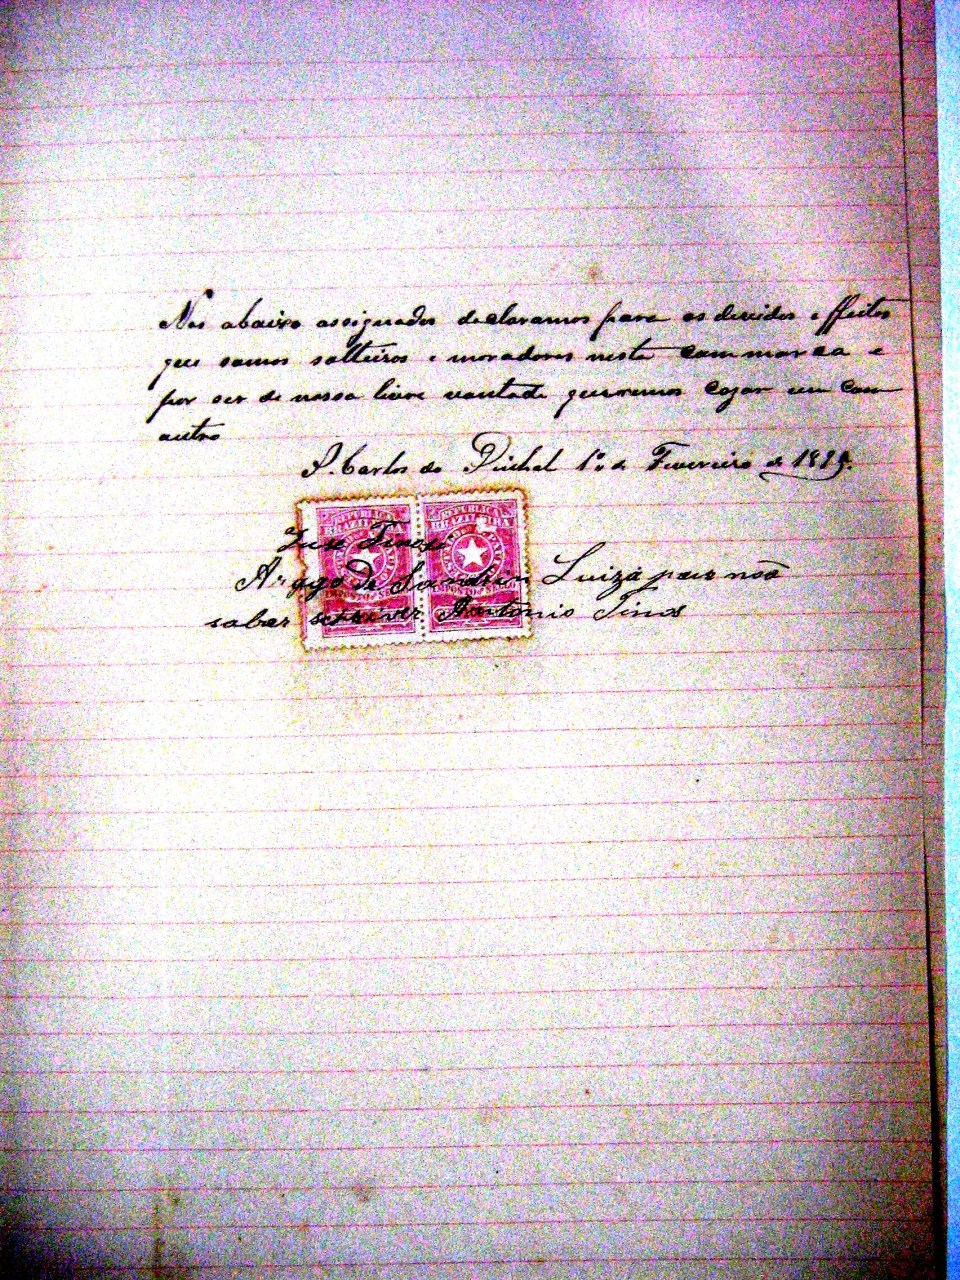 Nos abaixo assignados declaramos para os devidos effeitos
que somos solteiros e moradores nesta commarca e
por ser de nossa livre vontade queremos cazar um com
outro
S. Carlos do Pinhal 1º de Fevereiro de
REPUBLICA REPUBLICA
BRAZILEIRA BRAZILEIRA
IMPOSTO SELLO IMPOSTO SELLO
Jose
A rogo de Luiza por não
saber screver Antonio Tinos